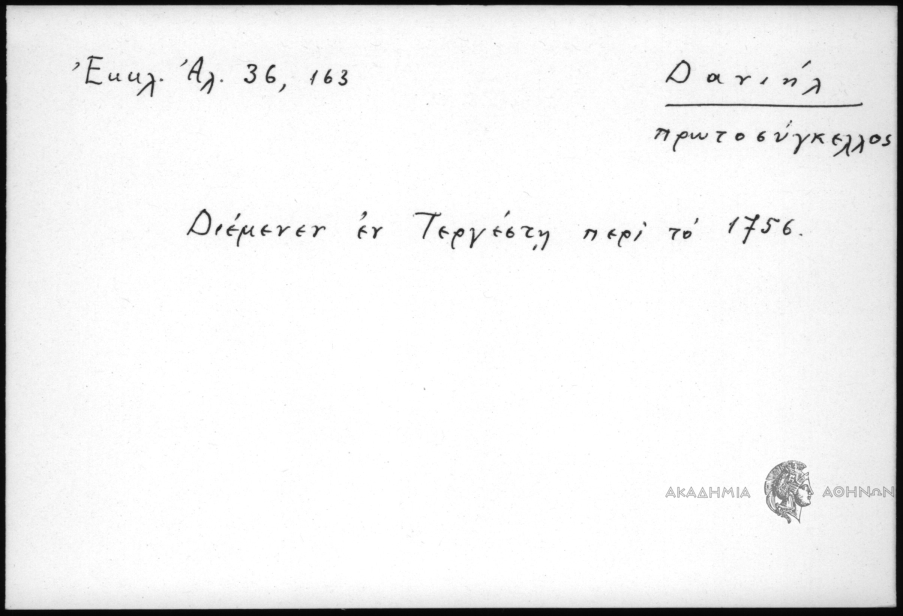 Ἐκκλ. Ἀλ. 36, 163
Δανιήλ
πρωτοσύγκελλος
Διέμενεν ἐν Τεργέστῃ περὶ τὸ 1756.
ΑΚΑΔΗΜΙΑ ΑΘΗΝΩΝ